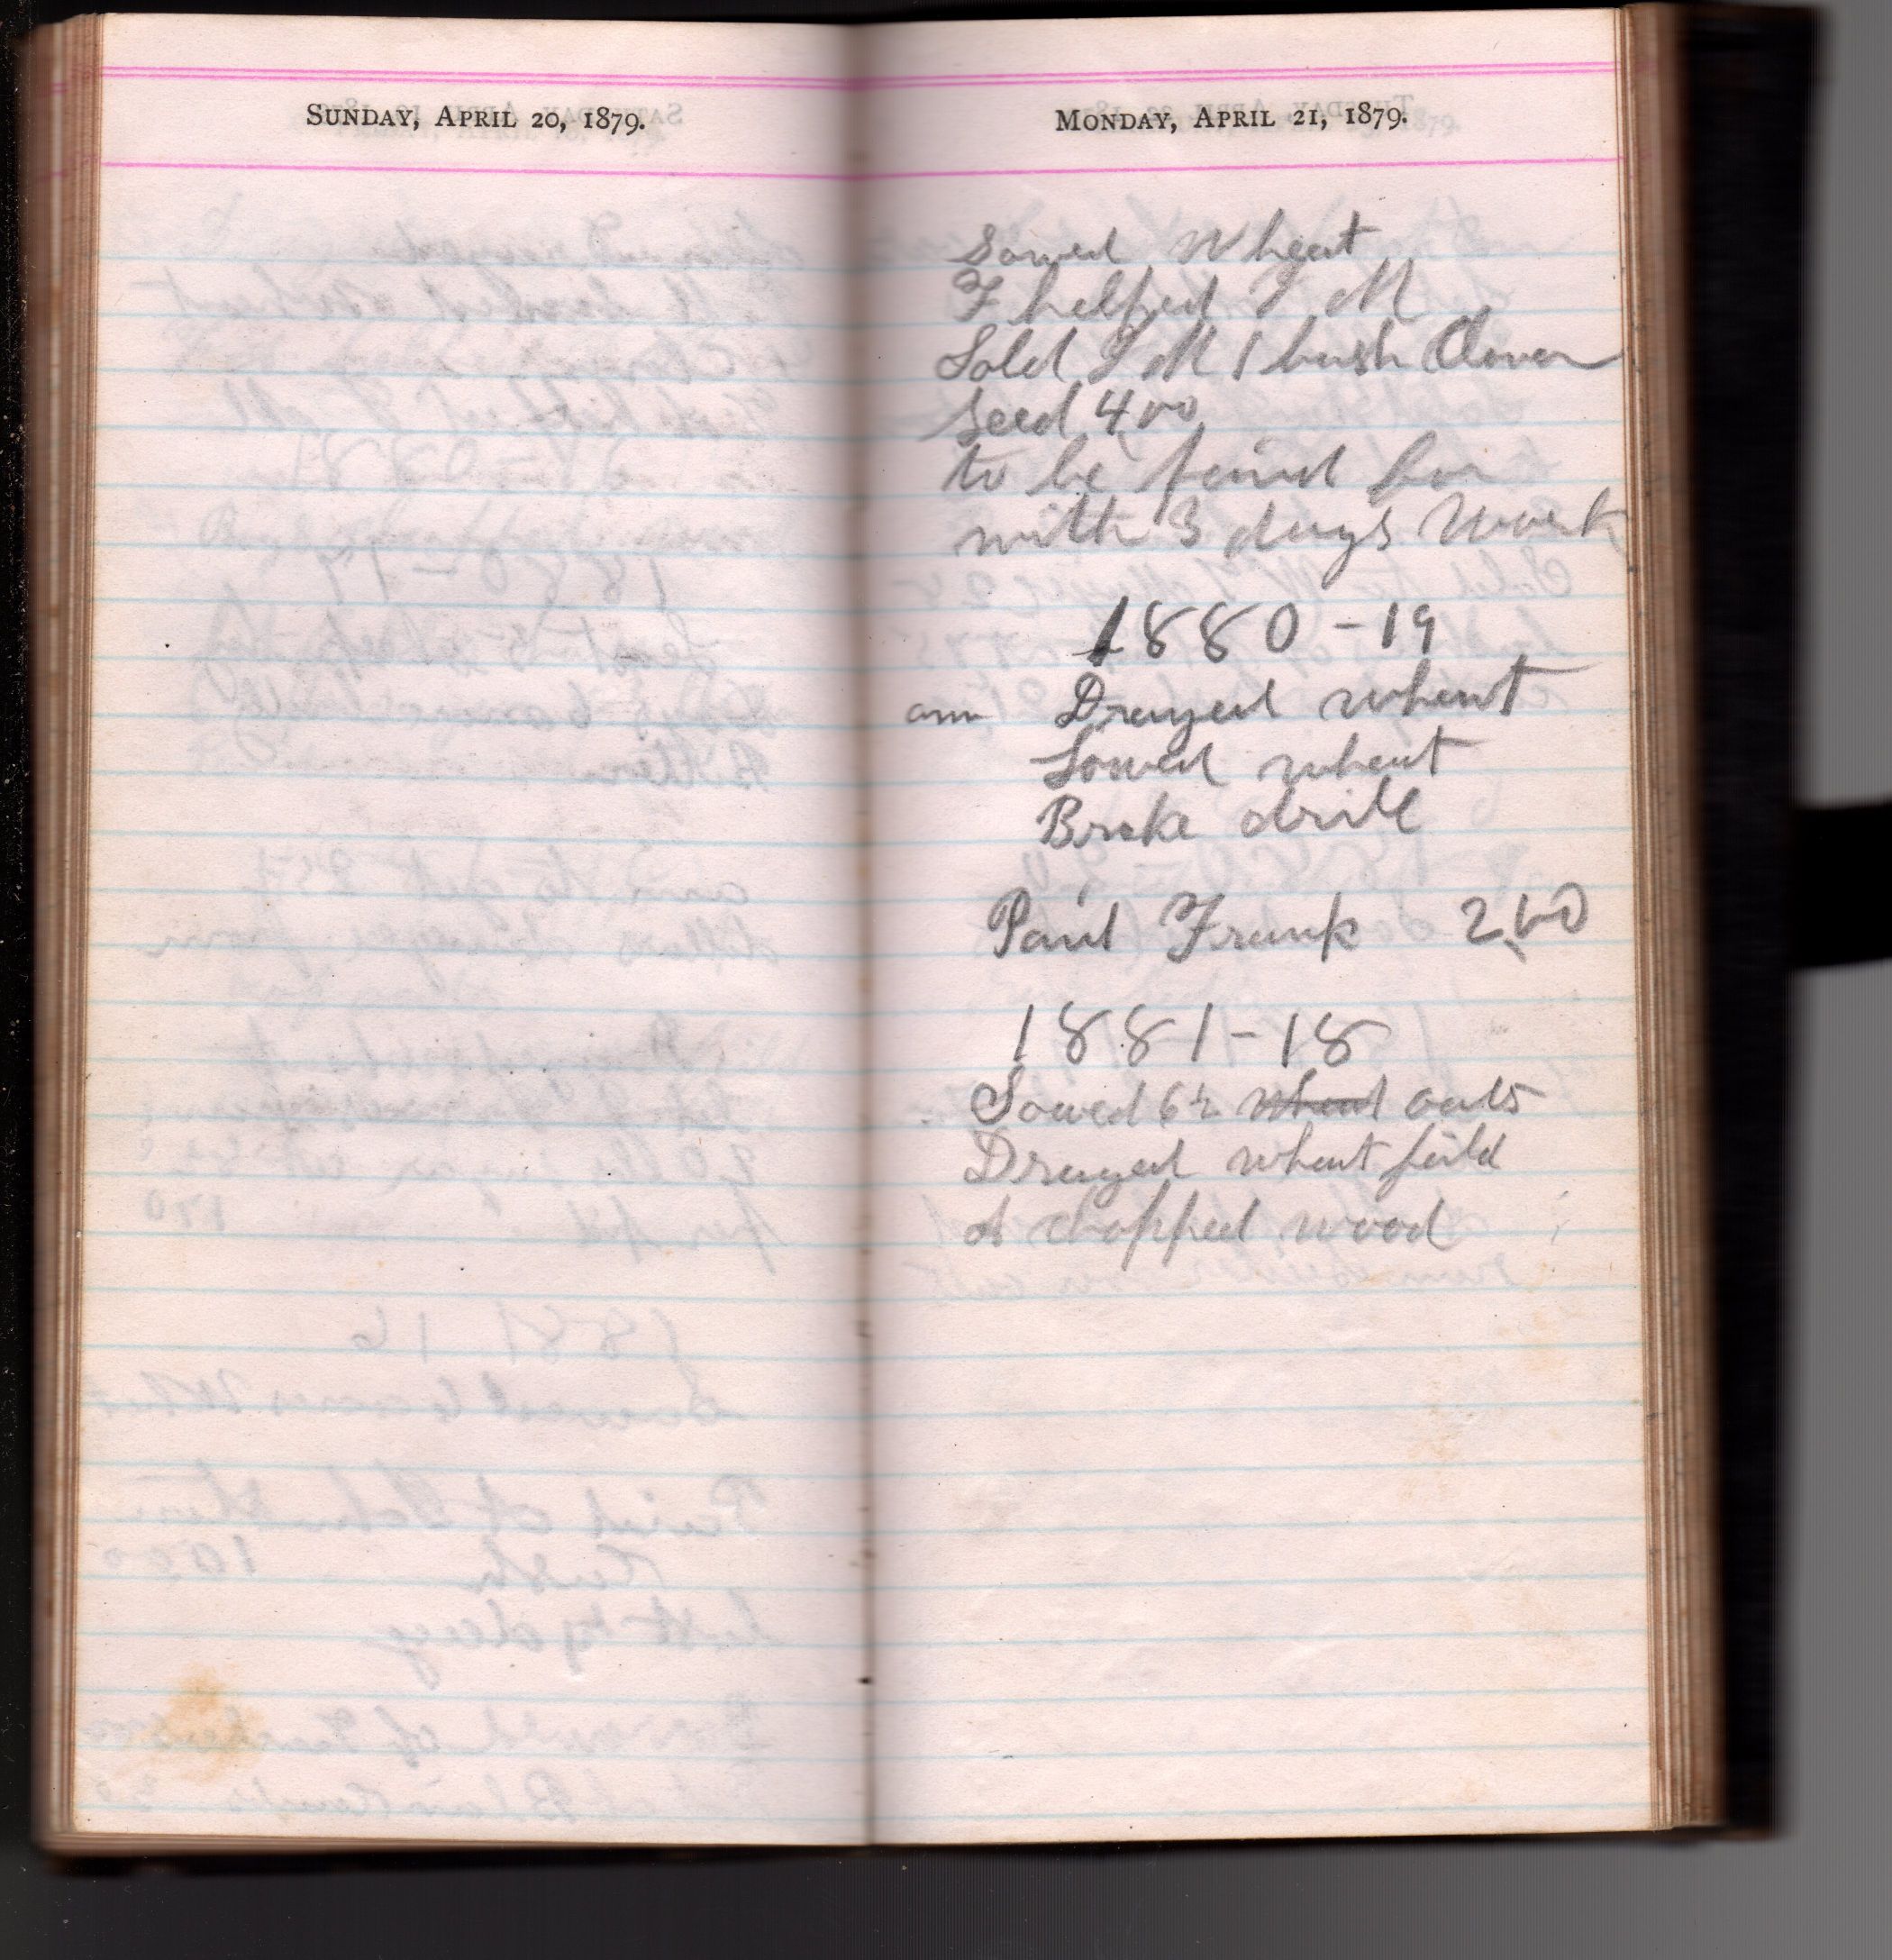 SUNDAY, APRIL 20, 1879.
MONDAY, APRIL 21, 1879.
Sowed Wheat
F helped I M
Sold I M 1 bush Clover
Seed 400
to be paid for
with 3 days Work
1880-19
am Draged wheat
Sowed wheat
Broke drill
Paid Frank 2,60
1881-18
Sowed 6 wheat oats
Draged wheat feild
A chopped wood